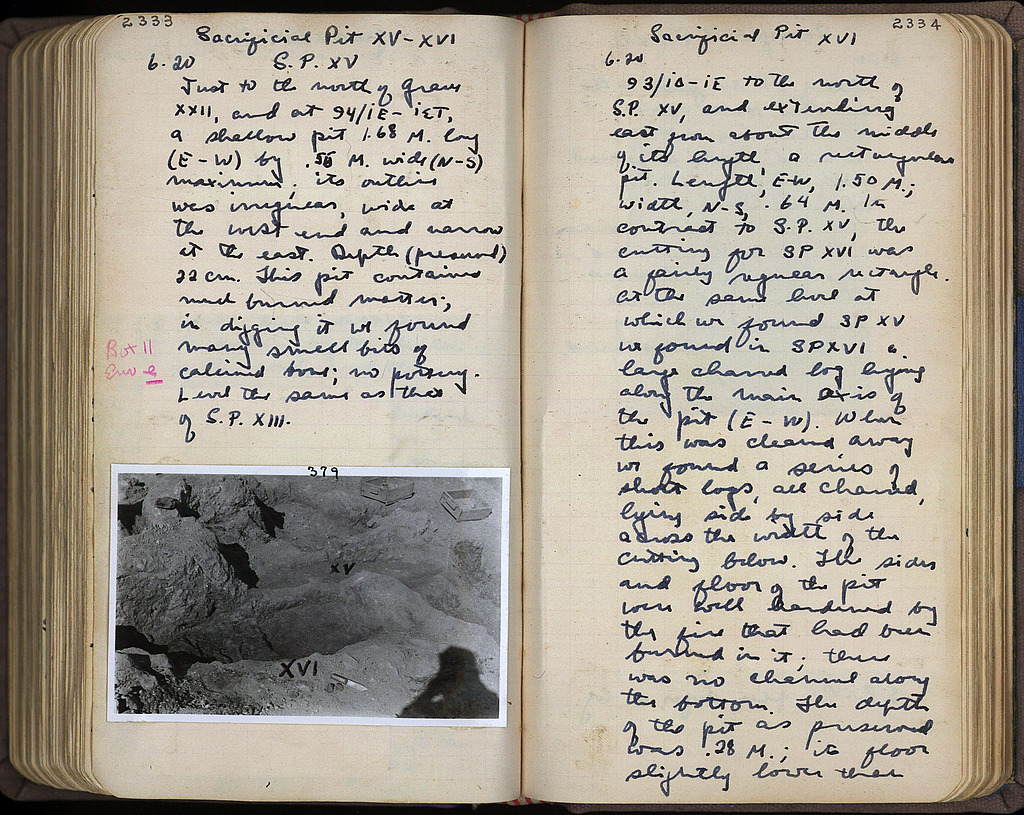 2333
Sacrificial Pit XV-XVI
6.20 S.P. XV
Just to the north of Grave
XXII, and at 94/ΙΕ-ΙΣΤ,
a shallow pit 1.68 M. long
(E-W) by .56 M. wide (N-S)
maximum; its outline
was irregular, wide at
the west end and narrow
at the east. Depth (preserved)
22 cm. This pit contained
much burned matter;
in digging it we found
many small bits of
calcined bone; no pottery.
Level the same as that
of S.P. XIII.
Bot 11
Env e
379
XV
XVI
2334
Sacrificial Pit XVI
6.20
93/ΙΔ-ΙΕ to the north of
S.P. XV, and extending
east from about the middle
of its length, a rectangular
pit. Length, E-W, 1.50 M.;
width, N-S, .64 M. In
contrast to S.P. XV, the
cutting for SP XVI was
a fairly regular rectangle.
At the same level at
which we found SP XV
we found in SP XVI a
large charred log lying
along the main axis of
the pit (E-W). When
this was cleared away
we found a series of
short logs, all charred,
lying side by side
across the width of the
cutting below. The sides
and floor of the pit
were well hardened by
the fire that had been
burned in it; there
was no channel along
the bottom. The depth
of the pit as preserved
was .28 M.; its floor
slightly lower than